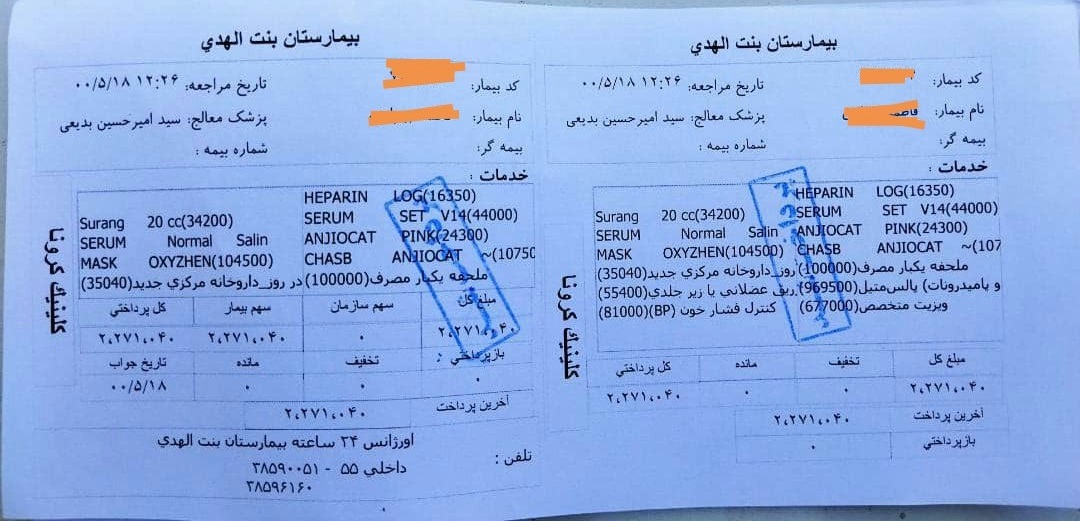 بیمارستان بنت الهدی
کد بیمار:
تاریخ مراجعه: ۱۲:۲۶ ۰۰/۵/۱۸
نام بیمار:
پزشک معالج: سید امیرحسین بدیعی
بیمه گر:
شماره بیمه :
خدمات :
HEPARIN LOG(16350)
Surang 20 cc(34200) SERUM SET V14(44000)
SERUM Normal Salin ANJIOCAT PINK(24300)
MASK OXYZHEN(104500) CHASB ANJIOCAT ~(107
ملحفه یکبار مصرف(100000) روز داروخانه مرکزي جدید(35040)
و پامیدرونات) پالس متیل(969500) ریق عضلاني یا زیر جلدي(55400)
ویزیت متخصص(677000) کنترل فشار خون (BP)(81000)
مبلغ کل تخفیف مانده کل پرداختي
۲،۲۷۱،۰۴۰ ۰ ۰ ۲،۲۷۱،۰۴۰
آخرین پرداخت ۲،۲۷۱،۰۴۰
بازپرداختي ۰
کلینیک کرونا
بیمارستان بنت الهدی
کد بیمار:
تاریخ مراجعه: ۱۲:۲۶ ۰۰/۵/۱۸
نام بیمار:
پزشک معالج: سید امیرحسین بدیعی
بیمه گر:
شماره بیمه :
خدمات :
HEPARIN LOG(16350)
Surang 20 cc(34200) SERUM SET V14(44000)
SERUM Normal Salin ANJIOCAT PINK(24300)
MASK OXYZHEN(104500) CHASB ANJIOCAT ~(1075
ملحفه یکبار مصرف(100000) در روز داروخانه مرکزي جدید(35040)
مبلغ کل سهم سازمان سهم بیمار کل پرداختي
۲،۲۷۱،۰۴۰ ۰ ۲،۲۷۱،۰۴۰ ۲،۲۷۱،۰۴۰
بازپرداختي : تخفیف مانده تاریخ جواب
۰ ۰ ۰ ۰۰/۵/۱۸
آخرین پرداخت ۲،۲۷۱،۰۴۰
اورژانس ۲۴ ساعته بیمارستان بنت الهدي
تلفن : داخلي ۵۵ - ۳۸۵۹۰۰۵۱
۳۸۵۹۶۱۶۰
کلینیک کرونا